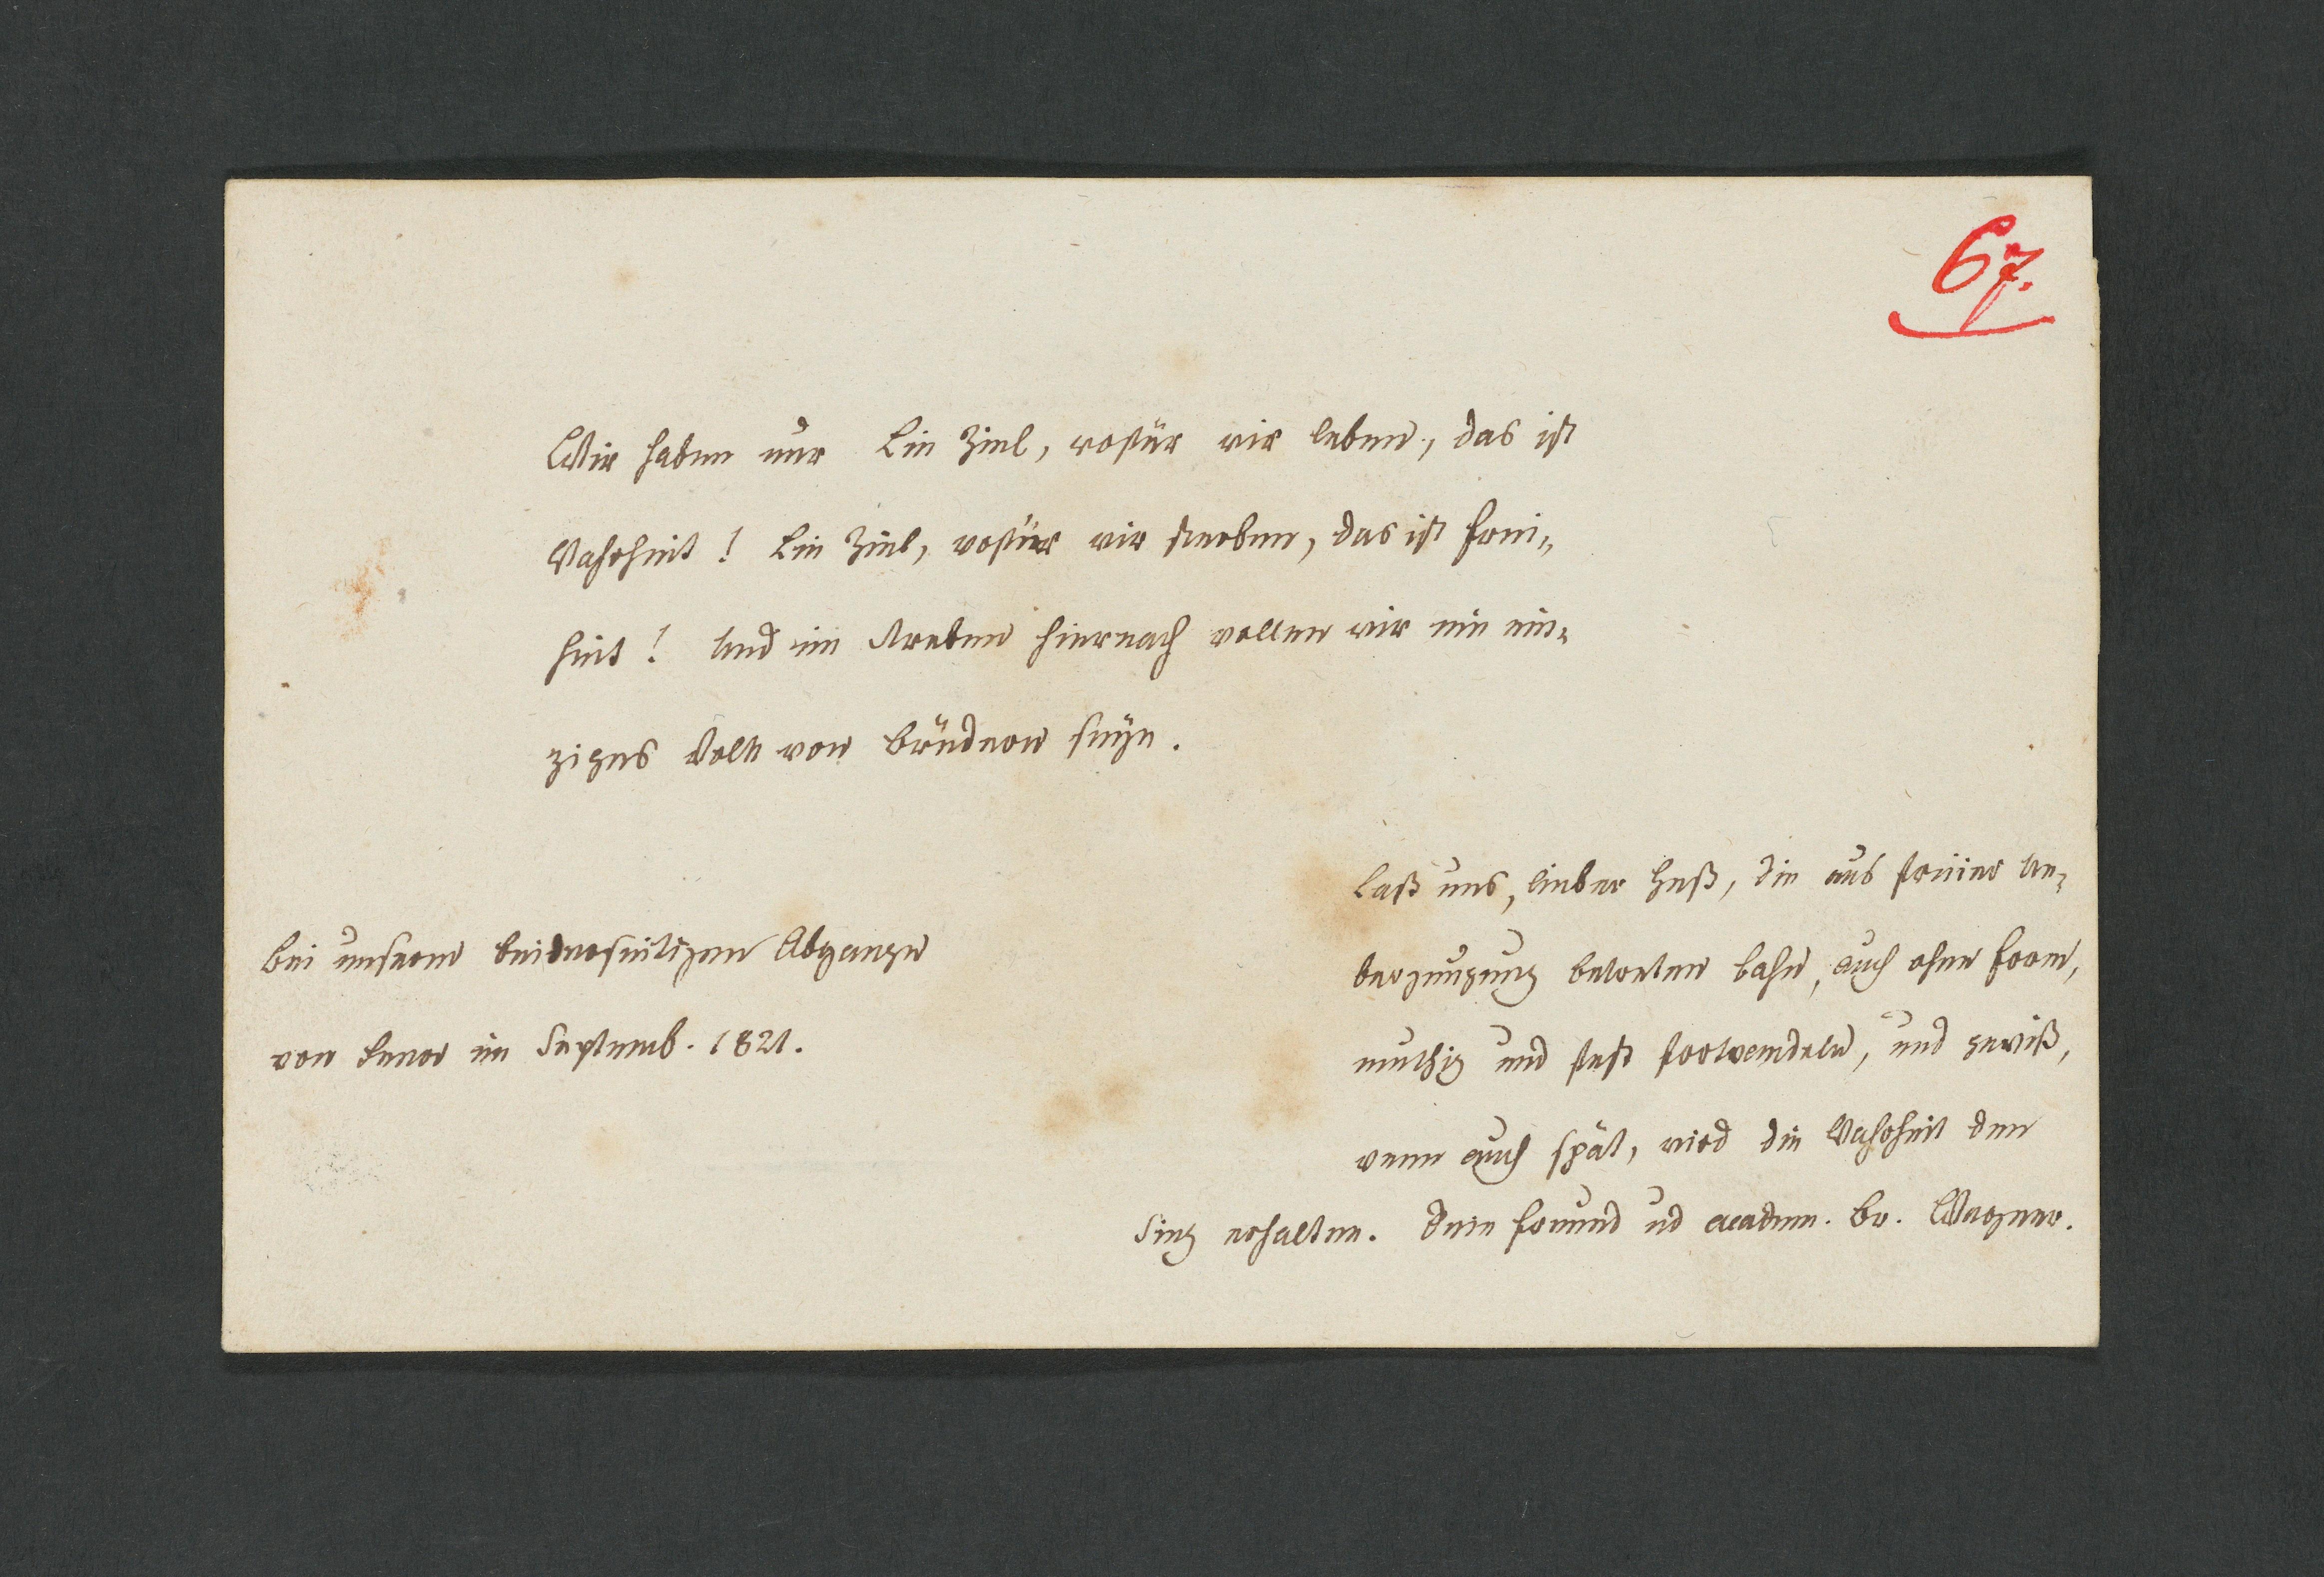 67.
Wir haben nur Ein Ziel, wofür wir leben, das ist
Wahrheit! Ein Ziel, wofür wir sterben, das ist Frei-
heit! Und im Streben hiernach wollen wir ein ein-
ziges Volk von Brüdern seyn.
Bei unserm beiderseitigen Abgange
von Jena im Septemb. 1821.
Laß uns, lieber Heß, die aus freier Ue-
berzeugung betretene Bahn, auch ohne Form,
muthig und fest fortwandeln, und gewiß,
wenn auch spät, wird die Wahrheit den
Sieg erhalten. Dein Freund ud academ. Br. Wagner.